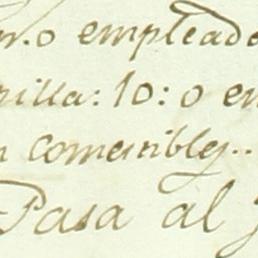 n.o emplead
rilla: 10: o en
n comesribles..
Pasa al